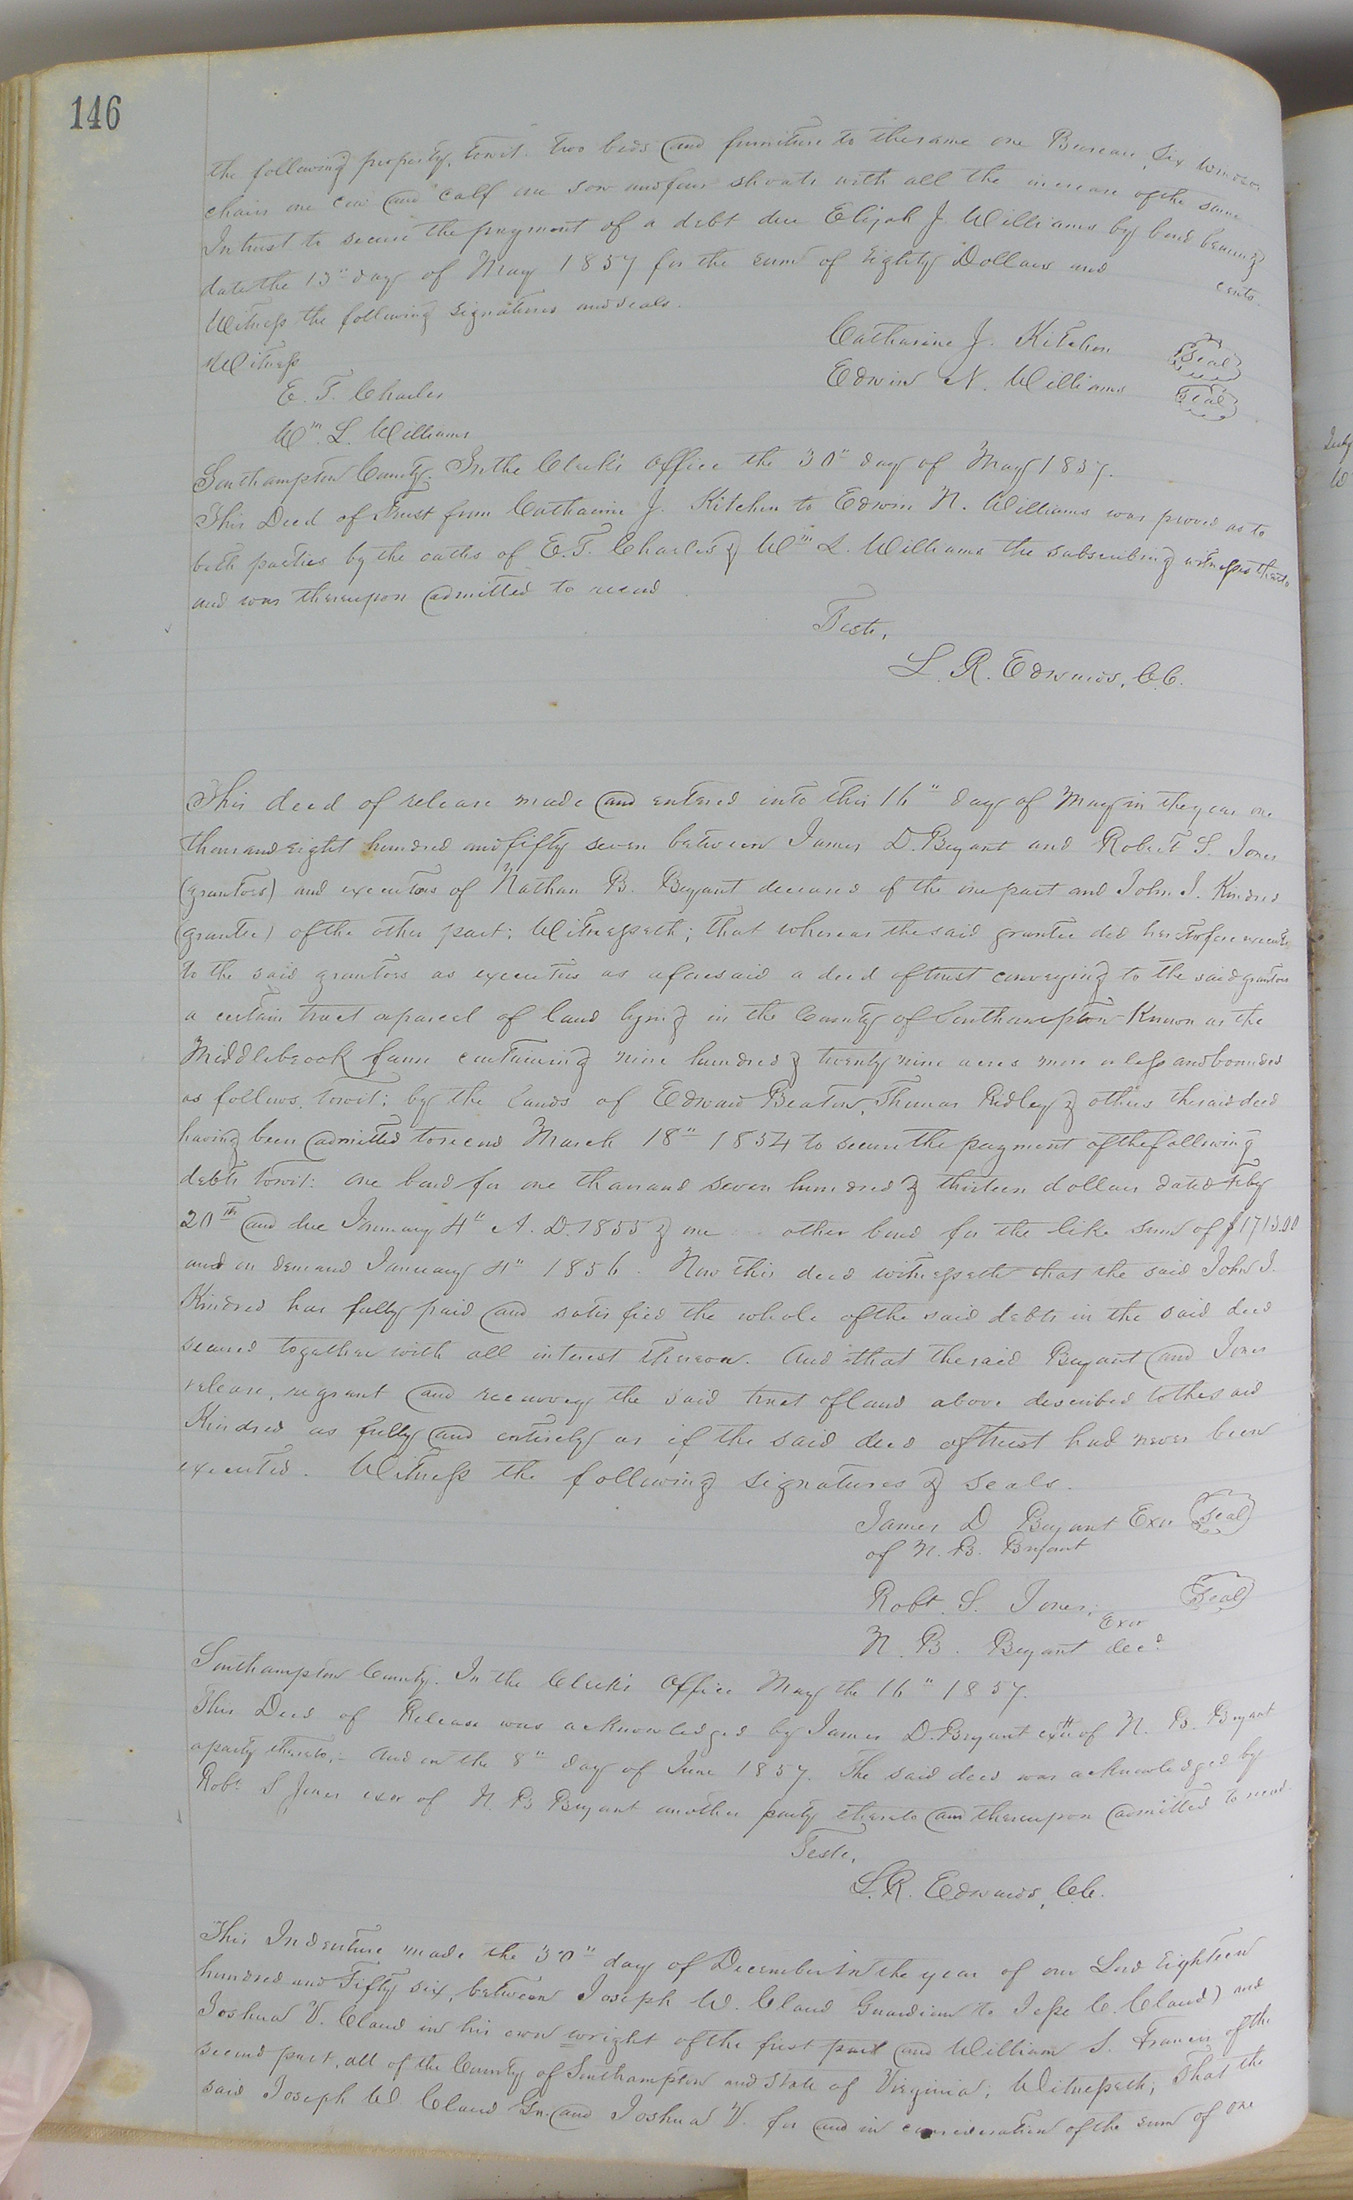 146
the following property, towit: two beds and furniture to the same one Bureau, Six
chairs one cow and calf one sow and four shoats with all the increase of the same
In trust to secure the payment of a debt due Elijah J. Williams by bond bearing
date the 13" day of May 1857 for the sum of Eighty Dollars and
cents.
Witness the following signatures and seals.
Catharine J. Kitchen Seal
Witness
Edwin N. Williams Seal
E. T. Charles
Wm. L. Williams
Southampton County. In the Clerk's office the 30" day of May 1857.
This Deed of Trust from Catharine J. Kitchen to Edwin N. Williams was proved as to
both parties by the oaths of E. T. Charles & Wm L. Williams the subscribing witnesses thereto
and was thereupon admitted to record
Teste,
L. R. Edwards, C.C.
This deed of release made and entered into this 16" day of May in the year one
thousand eight hundred and fifty seven between James D. Bryant and Robert S. Jones
(grantors) and executors of Nathan B. Bryant deceased of the one part and John J. Kindred
(grantee) of the other part; Witnesseth; that whereas the said grantee did heretofore execute
to the said grantors as executors as aforesaid a deed of trust conveying to the said grantors
a certain tract or parcel of land lying in the County of Southampton Known as the
Middlebrook farm containing nine hundred & twenty nine acres more or less and bounded
as follows, towit: by the lands of Edward Beaton, Thomas Ridley & others the said deed
having been admitted to record March 18" 1854 to secure the payment of the following
debts towit: One bond for one thousand seven hundred & thirteen dollars dated Feby
20th and due January 4" A. D. 1855 & one other bond for the like sum of $1713.00
and on demand January 4" 1856. Now this deed witnesseth that the said John J.
Kindred has fully paid and satisfied the whole of the said debts in the said deed
secured together with all interest thereon. And that the said Bryant and Jones
release, regrant and reconvey the said tract of land above described to the said
Kindred as fully and entirely as if the said deed of trust had never been
executed. Witness the following signatures & seals.
James D Bryant Exor Seal
of N. B. Bryant
Robt. S. Jones, Seal
Exor
N. B. Bryant decd
Southampton County. In the Clerk's Office May the 16" 1857.
This Deed of Release was acknowledged by James D. Bryant exor of N. B. Bryant
a party thereto,- And on the 8" day of June 1857. The said deed was acknowledged by
Robt S Jones exor of N. B Bryant another party thereto and thereupon admitted to record
Teste,
L. R. Edwards, C.C.
This Indenture made the 30" day of December in the year of our Lord Eighteen
hundred and Fifty six, between Joseph W. Claud Guardian to Jesse C. Claud) and
Joshua V. Claud in his own wright of the first part and William S. Francis of the
second part, all of the County of Southampton and State of Virginia, Witnesseth; That the
said Joseph W Claud Gn. and Joshua V. for and in consideration of the sum of one